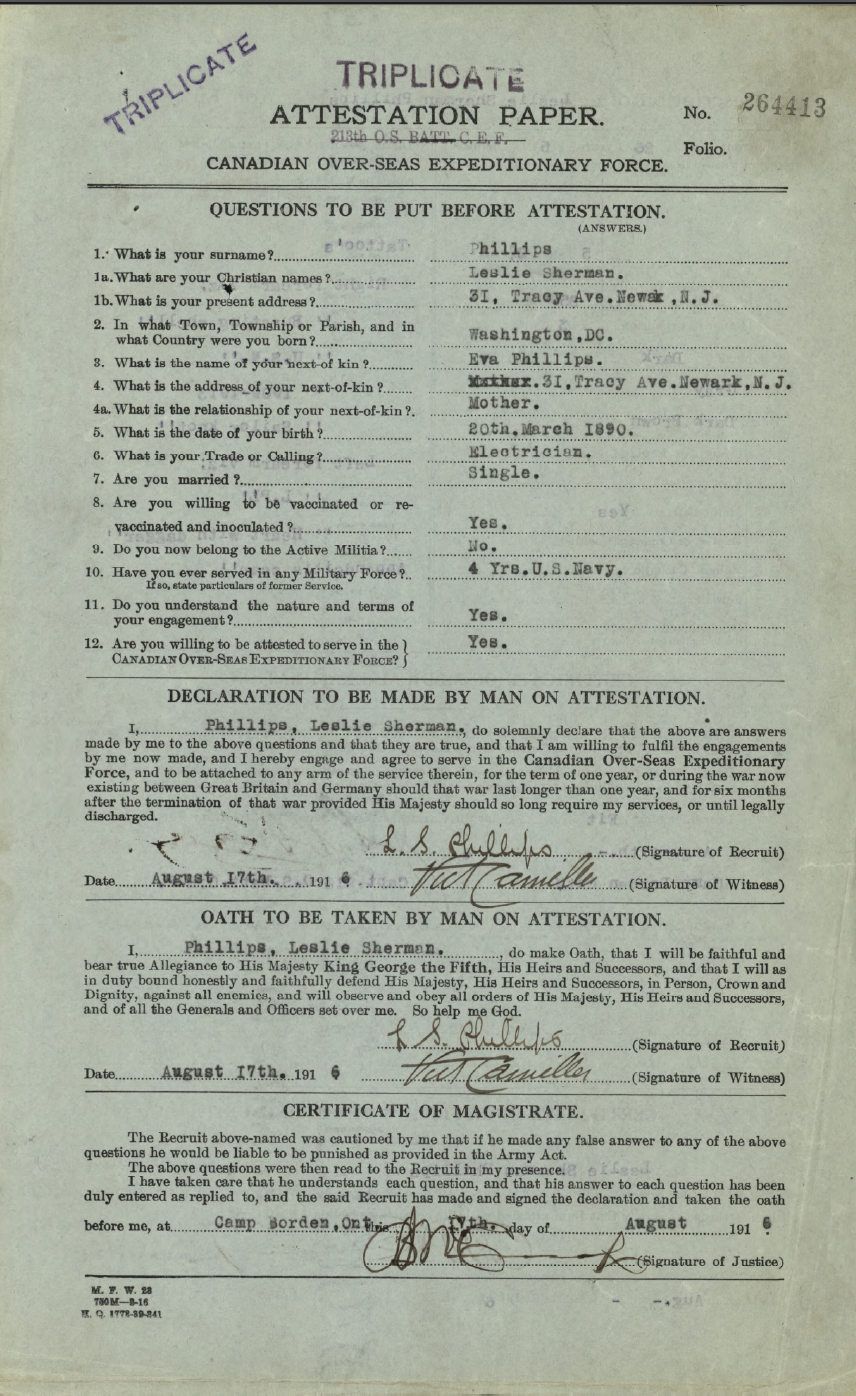 TRIPLICATE
TRIPLICATE
ATTESTATION PAPER.
No. 264413
213th O.S. BATT. C.E.F.
Folio.
CANADIAN OVER-SEAS EXPEDITIONARY FORCE.
QUESTIONS TO BE PUT BEFORE ATTESTATION.
(ANSWERS.)
1. What is your surname? Phillips
1a. What are your Christian names? Leslie Sherman.
1b. What is your present address? 31, Tracy Ave.Newak ,N.J.
2. In what Town, Township or Parish, and in
what Country were you born? Washington,DC.
3. What is the name of your next-of kin? Eva Phillips.
4. What is the address of your next-of-kin? .31,Tracy Ave.Newark,N.J.
4a. What is the relationship of your next-of-kin?. Mother.
5. What is the date of your birth? 20th.March 1890.
6. What is your Trade or Calling? Electrician.
7. Are you married? Single.
8. Are you willing to be vaccinated or re-
vaccinated and inoculated? Yes.
9. Do you now belong to the Active Militia? No.
10. Have you ever served in any Military Force?.. 4 Yrs.U.S.Navy.
If so, state particulars of former Service.
11. Do you understand the nature and terms of
your engagement? Yes.
12. Are you willing to be attested to serve in the Yes.
CANADIAN OVER-SEAS EXPEDITIONARY FORCE?
DECLARATION TO BE MADE BY MAN ON ATTESTATION.
I, Phillips, Leslie Sherman., do solemnly declare that the above are answers
made by me to the above questions and that they are true, and that I am willing to fulfil the engagements
by me now made, and I hereby engage and agree to serve in the Canadian Over-Seas Expeditionary
Force, and to be attached to any arm of the service therein, for the term of one year, or during the war now
existing between Great Britain and Germany should that war last longer than one year, and for six months
after the termination of that war provided His Majesty should so long require my services, or until legally
discharged.
L. S. Phillips (Signature of Recruit)
Date August 17th. 191 6 (Signature of Witness)
OATH TO BE TAKEN BY MAN ON ATTESTATION.
I, Phillips, Leslie Sherman. , do make Oath, that I will be faithful and
bear true Allegiance to His Majesty King George the Fifth, His Heirs and Successors, and that I will as
in duty bound honestly and faithfully defend His Majesty, His Heirs and Successors, in Person, Crown and
Dignity, against all enemies, and will observe and obey all orders of His Majesty, His Heirs and Successors,
and of all the Generals and Officers set over me. So help me God.
L. S. Phillips (Signature of Recruit)
Date August 17th. 191 6 (Signature of Witness)
CERTIFICATE OF MAGISTRATE.
The Recruit above-named was cautioned by me that if he made any false answer to any of the above
questions he would be liable to be punished as provided in the Army Act.
The above questions were then read to the Recruit in my presence.
I have taken care that he understands each question, and that his answer to each question has been
duly entered as replied to, and the said Recruit has made and signed the declaration and taken the oath
before me, at Camp Borden,Ont. this 17th. day of August 191 6
(Signature of Justice)
M. F. W. 23
750M—2-16
H. Q. 1772-39-241